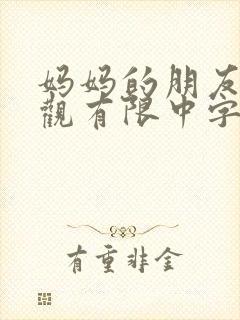 妈妈的朋友
觀有限中字
有重非金